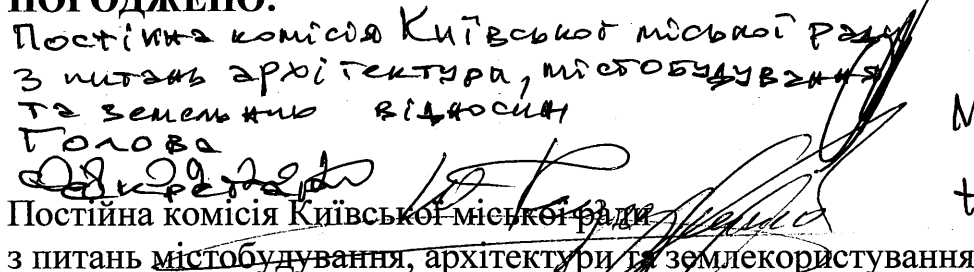 ПОГОДЖЕНО:
Постійна комісія Київської міської ради
з питань архітектури, містобудування
та земельних відносин
Голова
Секретар
Постійна комісія Київської міської ради
з питань містобудування, архітектури та землекористування